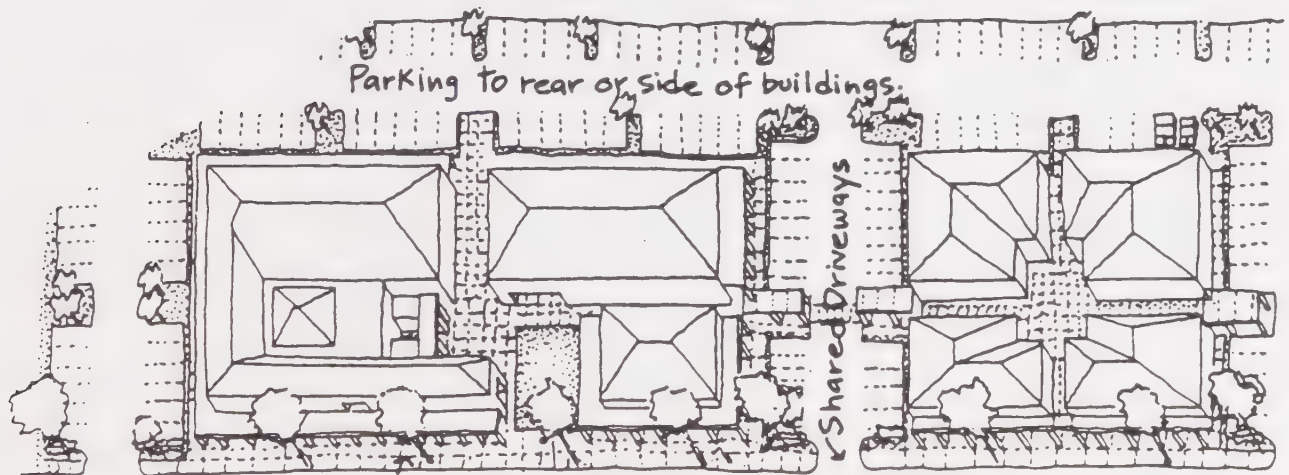 Parking to rear or side of buildings.
Shared Driveways